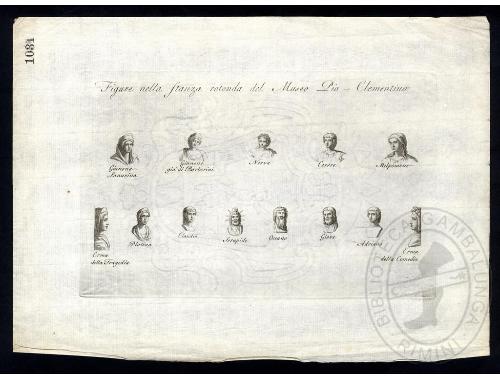 1084
Figure nella stanza rotonda del Museo Pio-Clementino
Giunone
Giunone
Nerva
Cerere
Melpomene
Plotina
Claudio
Serapide
Oceano
Giove
Adriano
Erma
della Tragedia
Erma
della Comedia
BIBLIOTECA GAMBALUNGA
RIMINI